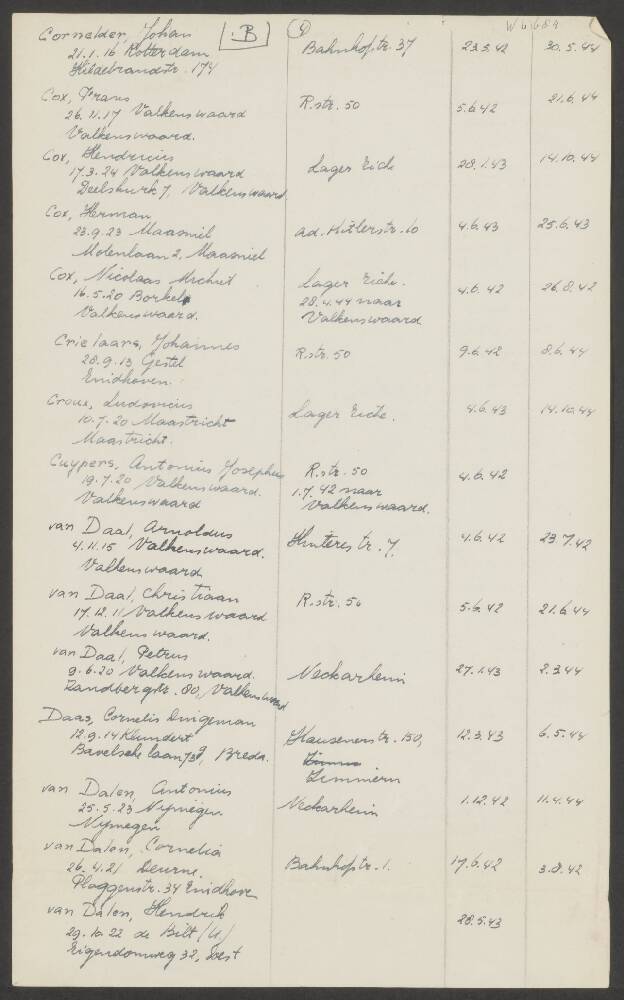 Cornelder, Johan B 4
21.1.16 Rotterdam Bahnhofstr. 37 23.5.42 30.5.44
Hildebrandstr. 174
Cox, Frans
26.11.17 Valkenswaard R.str. 50 5.6.42 21.6.44
Valkenswaard.
Cox, Hendricus
17.3.24 Valkenswaard Lager Eich 28.1.43 14.10.44
7, Valkenswaard
Cox, Herman
23.9.23 Maasniel ad. Hitlerstr. 10 4.6.43 25.6.43
Molenlaan 2, Maasniel
Cox, Nicolaas Michiel Lager Eiche.
16.5.20 Borkel 28.4.44 naar 4.6.42 26.8.42
Valkenswaard. Valkenswaard
Crielaars, Johannes
28.9.13 Gestel R.str. 50 9.6.42 8.6.44
Eindhoven.
Croux, Ludovicus
10.7.20 Maastricht Lager Eiche. 4.6.43 14.10.44
Maastricht.
Cuypers, Antonius Josephus R.str. 50
19.7.20 Valkenswaard. 1.7.42 naar 4.6.42
Valkenswaard Valkenswaard.
van Daal, Arnoldus
4.11.15 Valkenswaard. Hinterestr. 7. 4.6.42 23.7.42
Valkenswaard
van Daal, Christiaan
17.12.11 Valkenswaard R.str. 50 5.6.42 21.6.44
Valkenswaard.
van Daal, Petrus
9.6.20 Valkenswaard. Neckarheim 27.1.43 2.3.44
Zandbergstr. 80, Valkenswaard
Daas, Cornelis Dingeman
12.9.14 Klundert Hausenerstr. 150, 12.3.43 6.5.44
Bavelsche laan, Breda. Zimmern
van Dalen, Antonius
25.5.23 Nijmegen Neckarheim 1.12.42 11.4.44
Nijmegen
van Dalen, Cornelia
26.4.21 Deurne. Bahnhofstr. 1. 17.6.42 3.8.42
Ploggenstr. 34 Eindhove
van Dalen, Hendrik
29.10.22 de Bilt (U) 28.5.43
Eigendomweg 32, Soest